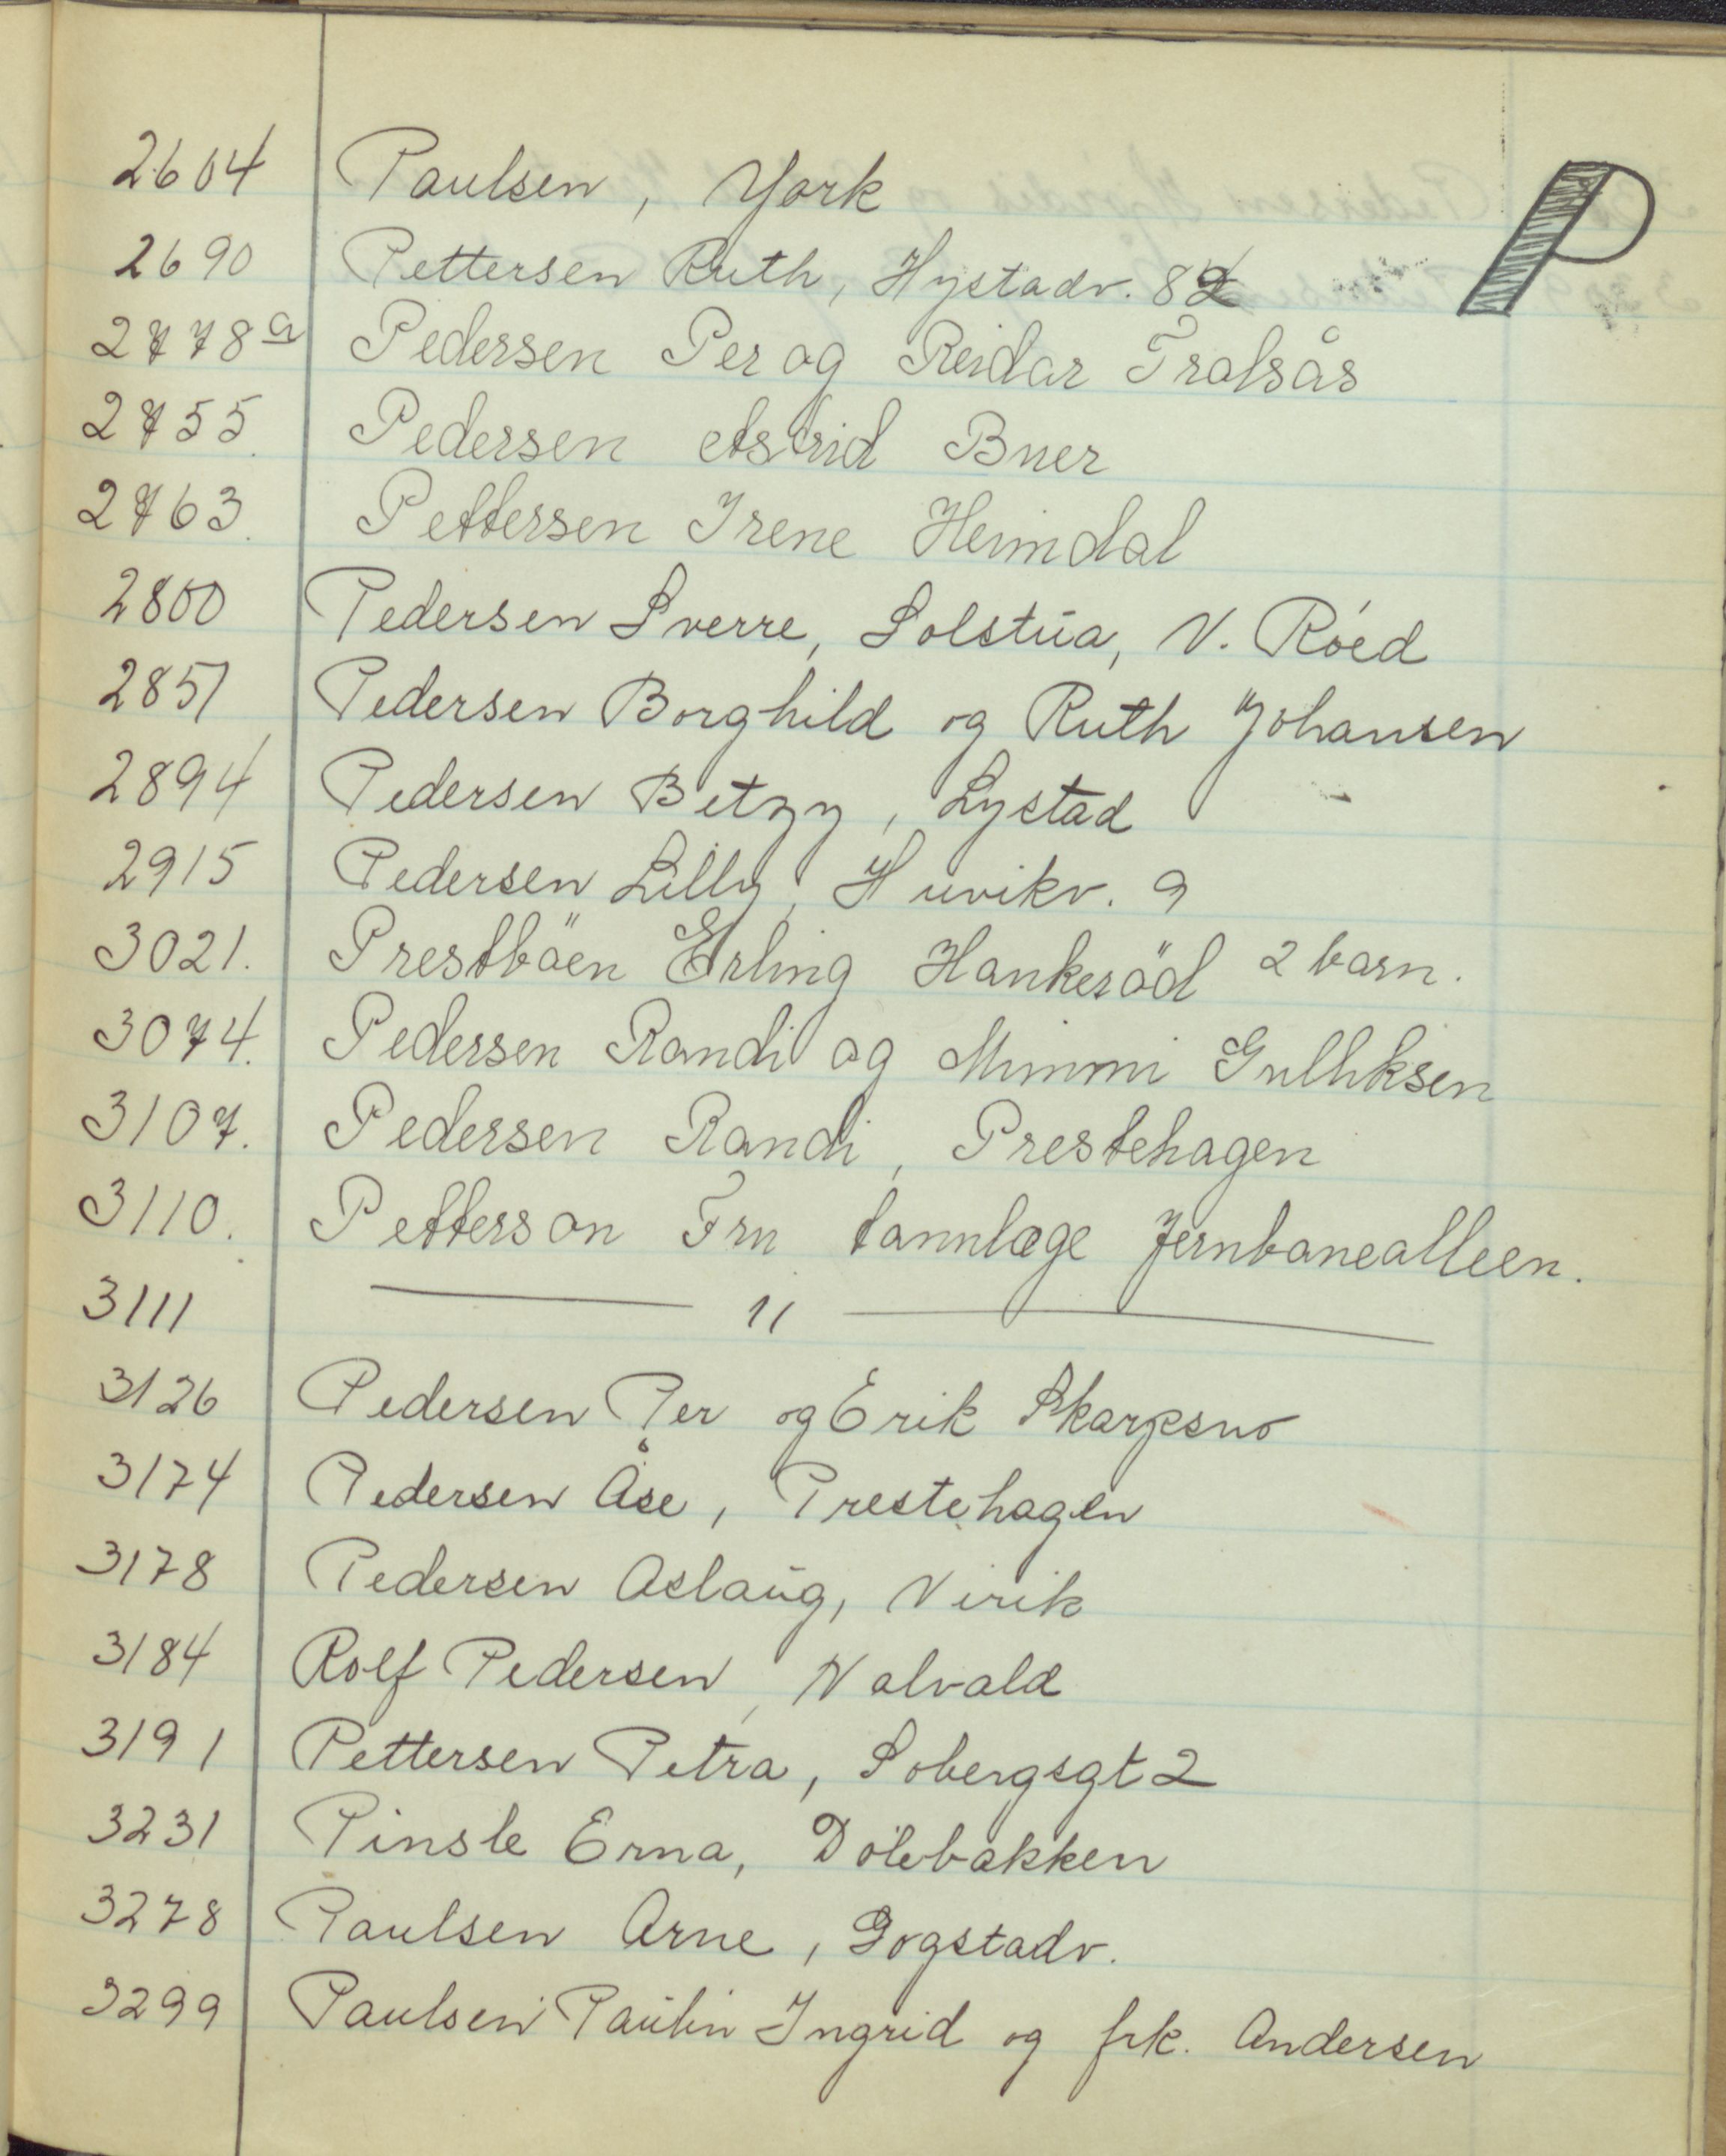 P
2604 Paulsen, York
2690 Pettersen Ruth, Hystadv. 82
2778 a Pedersen Per og Reidar Tralsås
2755. Pedersen Astrid Buer
2763. Pettersen Irene Heimdal
2800 Pedersen Sverre, Solstua, V. Róed
2851 Pedersen Borghild og Ruth Johansen
2894 Pedersen Betzy, Lystad
2915 Pedersen Lilly, Huvikv. 9
3021. Prestböen Erling Hankeröd 2 barn.
3074. Pedersen Randi og Mimmi Gulliksen
3107. Pedersen Randi, Prestehagen
3110. Petterson Fru tannlæge Jernbanealleen.
3111 — 〃 —
3126 Pedersen Per og Erik Skarpsno
3174 Pedersen Åse, Prestehagen
3178 Pedersen Aslaug, Virik
3184 Rolf Pedersen, Nalvald
3191 Pettersen Petra, Sobergsgt 2
3231 Pinsle Erna, Dölebakken
3278 Paulsen Arne, Gogstadv.
3299 Paulsen Paulin Ingrid og frk. Andersen